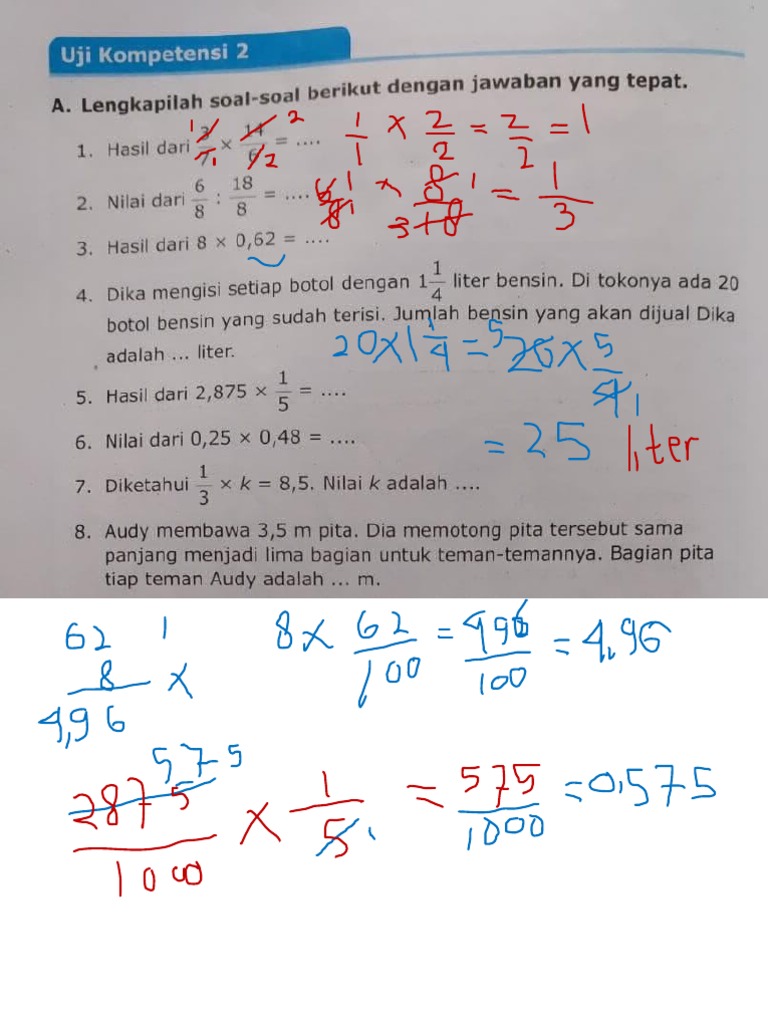 Uji Kompetensi 2
A. Lengkapilah soal-soal berikut dengan jawaban yang tepat.
1. Hasil dari 3/7 × 14/6 = .... 1/1 × 2/2 = 2/2 = 1
2. Nilai dari 6/8 : 18/8 = .... 6/8 × 8/18 = 1/3
3. Hasil dari 8 × 0,62 = ....
4. Dika mengisi setiap botol dengan 1 1/4 liter bensin. Di tokonya ada 20
botol bensin yang sudah terisi. Jumlah bensin yang akan dijual Dika
adalah ... liter. 20 × 1 1/4 = 20 × 5/4
5. Hasil dari 2,875 × 1/5 = ....
= 25 liter
6. Nilai dari 0,25 × 0,48 = ....
7. Diketahui 1/3 × k = 8,5. Nilai k adalah ....
8. Audy membawa 3,5 m pita. Dia memotong pita tersebut sama
panjang menjadi lima bagian untuk teman-temannya. Bagian pita
tiap teman Audy adalah ... m.
62 1
8 ×
4,96
8 × 62/100 = 496/100 = 4,96
575
2875/1000 × 1/5 = 575/1000 = 0,575